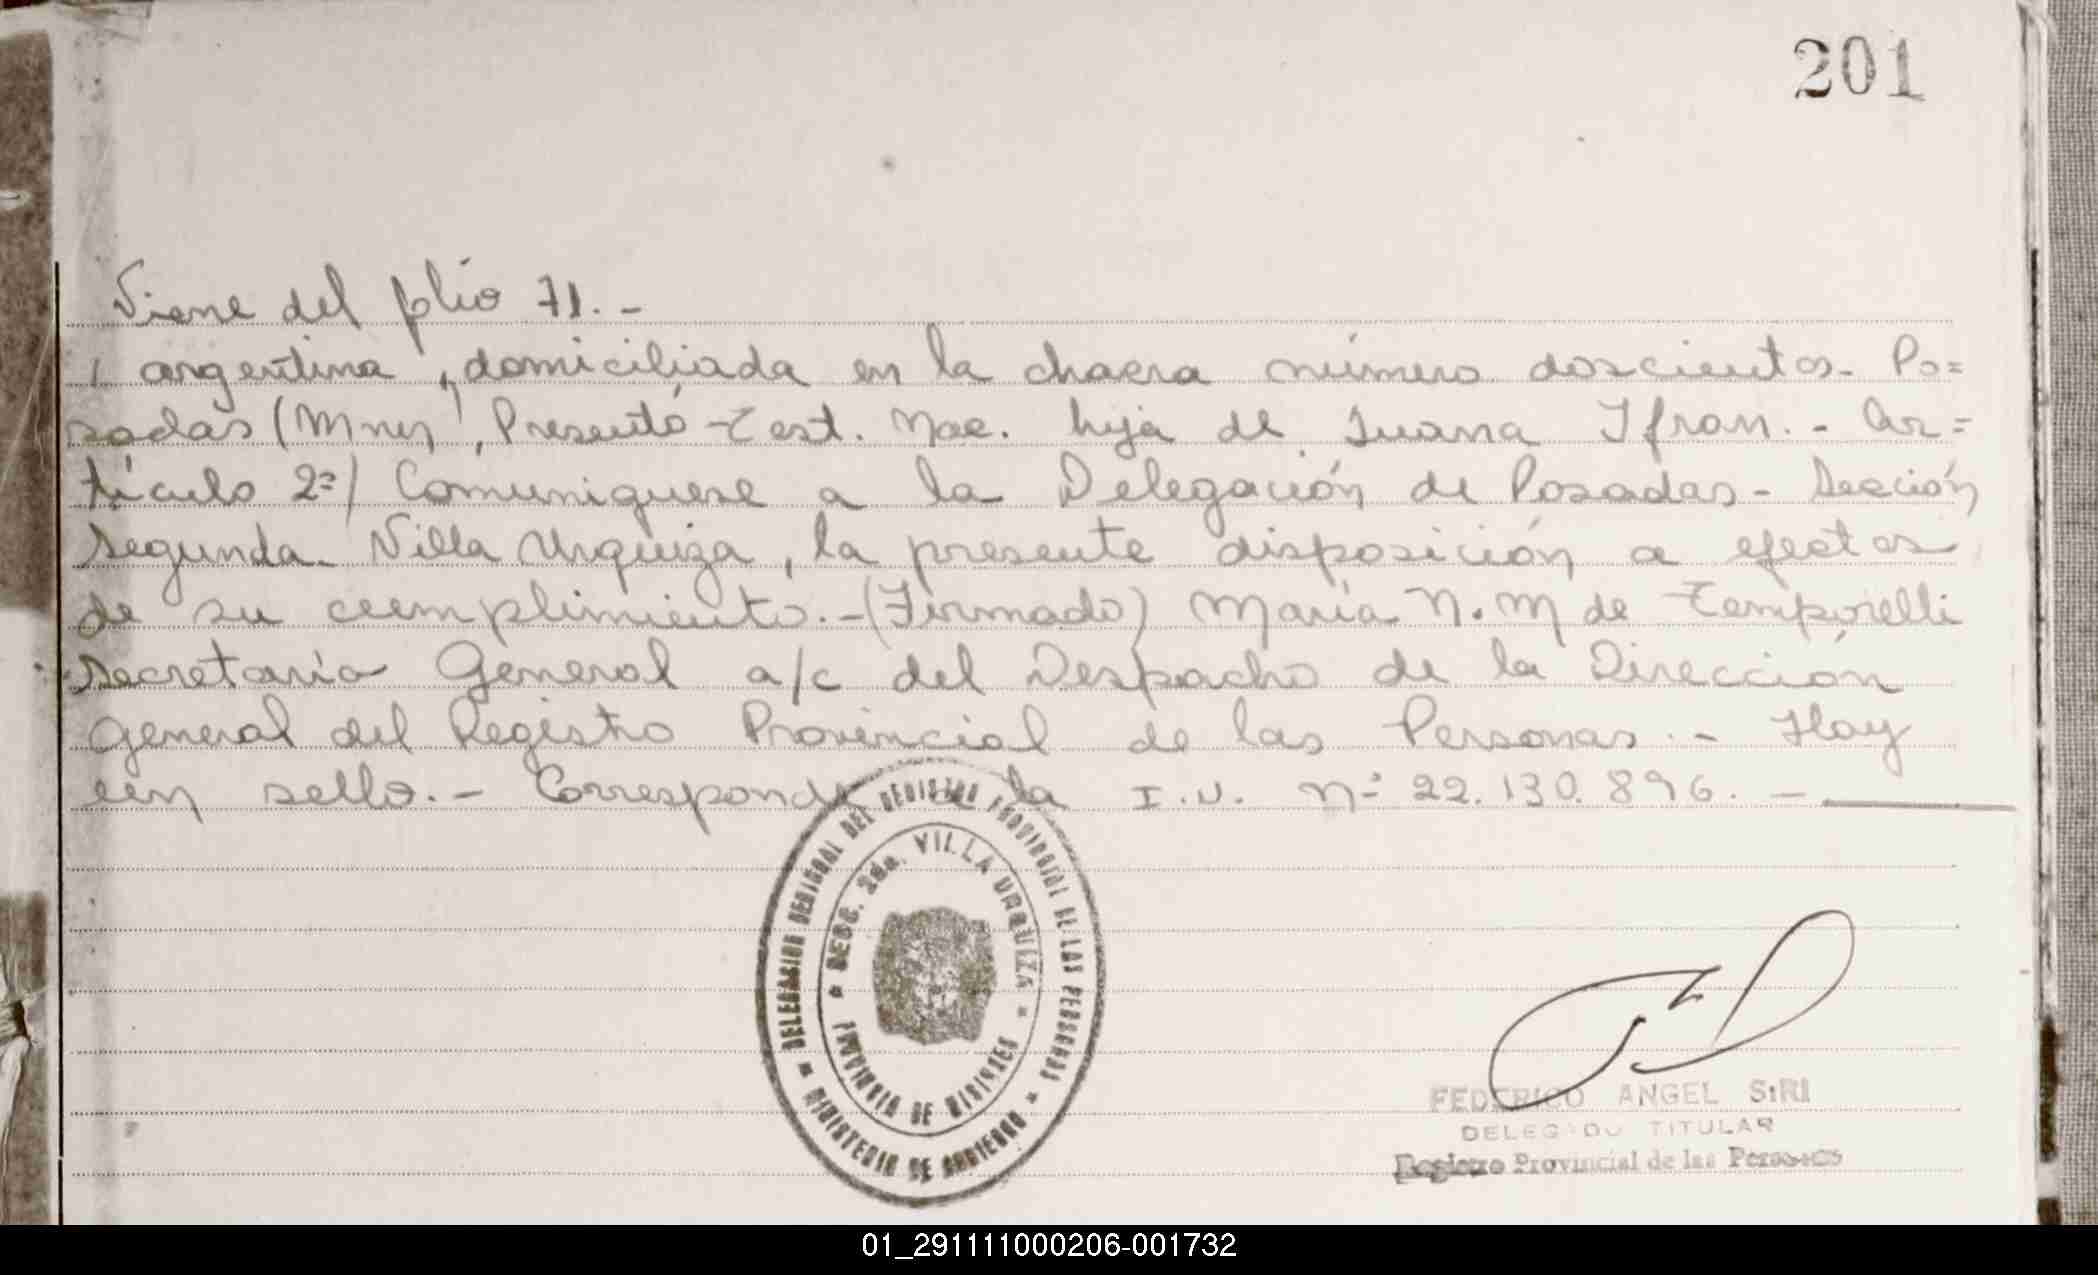 201
Viene del folio 71.-
, argentina, domiciliada en la chacra número doscientos- Po=
sadas (Mnes), Presentó Test. Nac. hija de Juana Ifran.- Ar=
tículo 2º/ Comuniquese a la Delegación de Posadas- Sección
Segunda- Villa Urquiza, la presente disposición a efectos
de su cumplimiento.-(Firmado) María N. M de Temporelli
Secretaria General a/c del Despacho de la Dirección
General del Registro Provincial de las Personas.- Hay
un sello.- Corresponde la I.U. Nº 22.130.896.-
DELEGACION REGIONAL DEL REGISTRO PROVINCIAL DE LAS PERSONAS
SECC. 2da. VILLA URQUIZA
PROVINCIA DE MISIONES
MINISTERIO DE GOBIERNO
FEDERICO ANGEL SIRI
DELEGADO TITULAR
Registro Provincial de las Personas
01_291111000206-001732